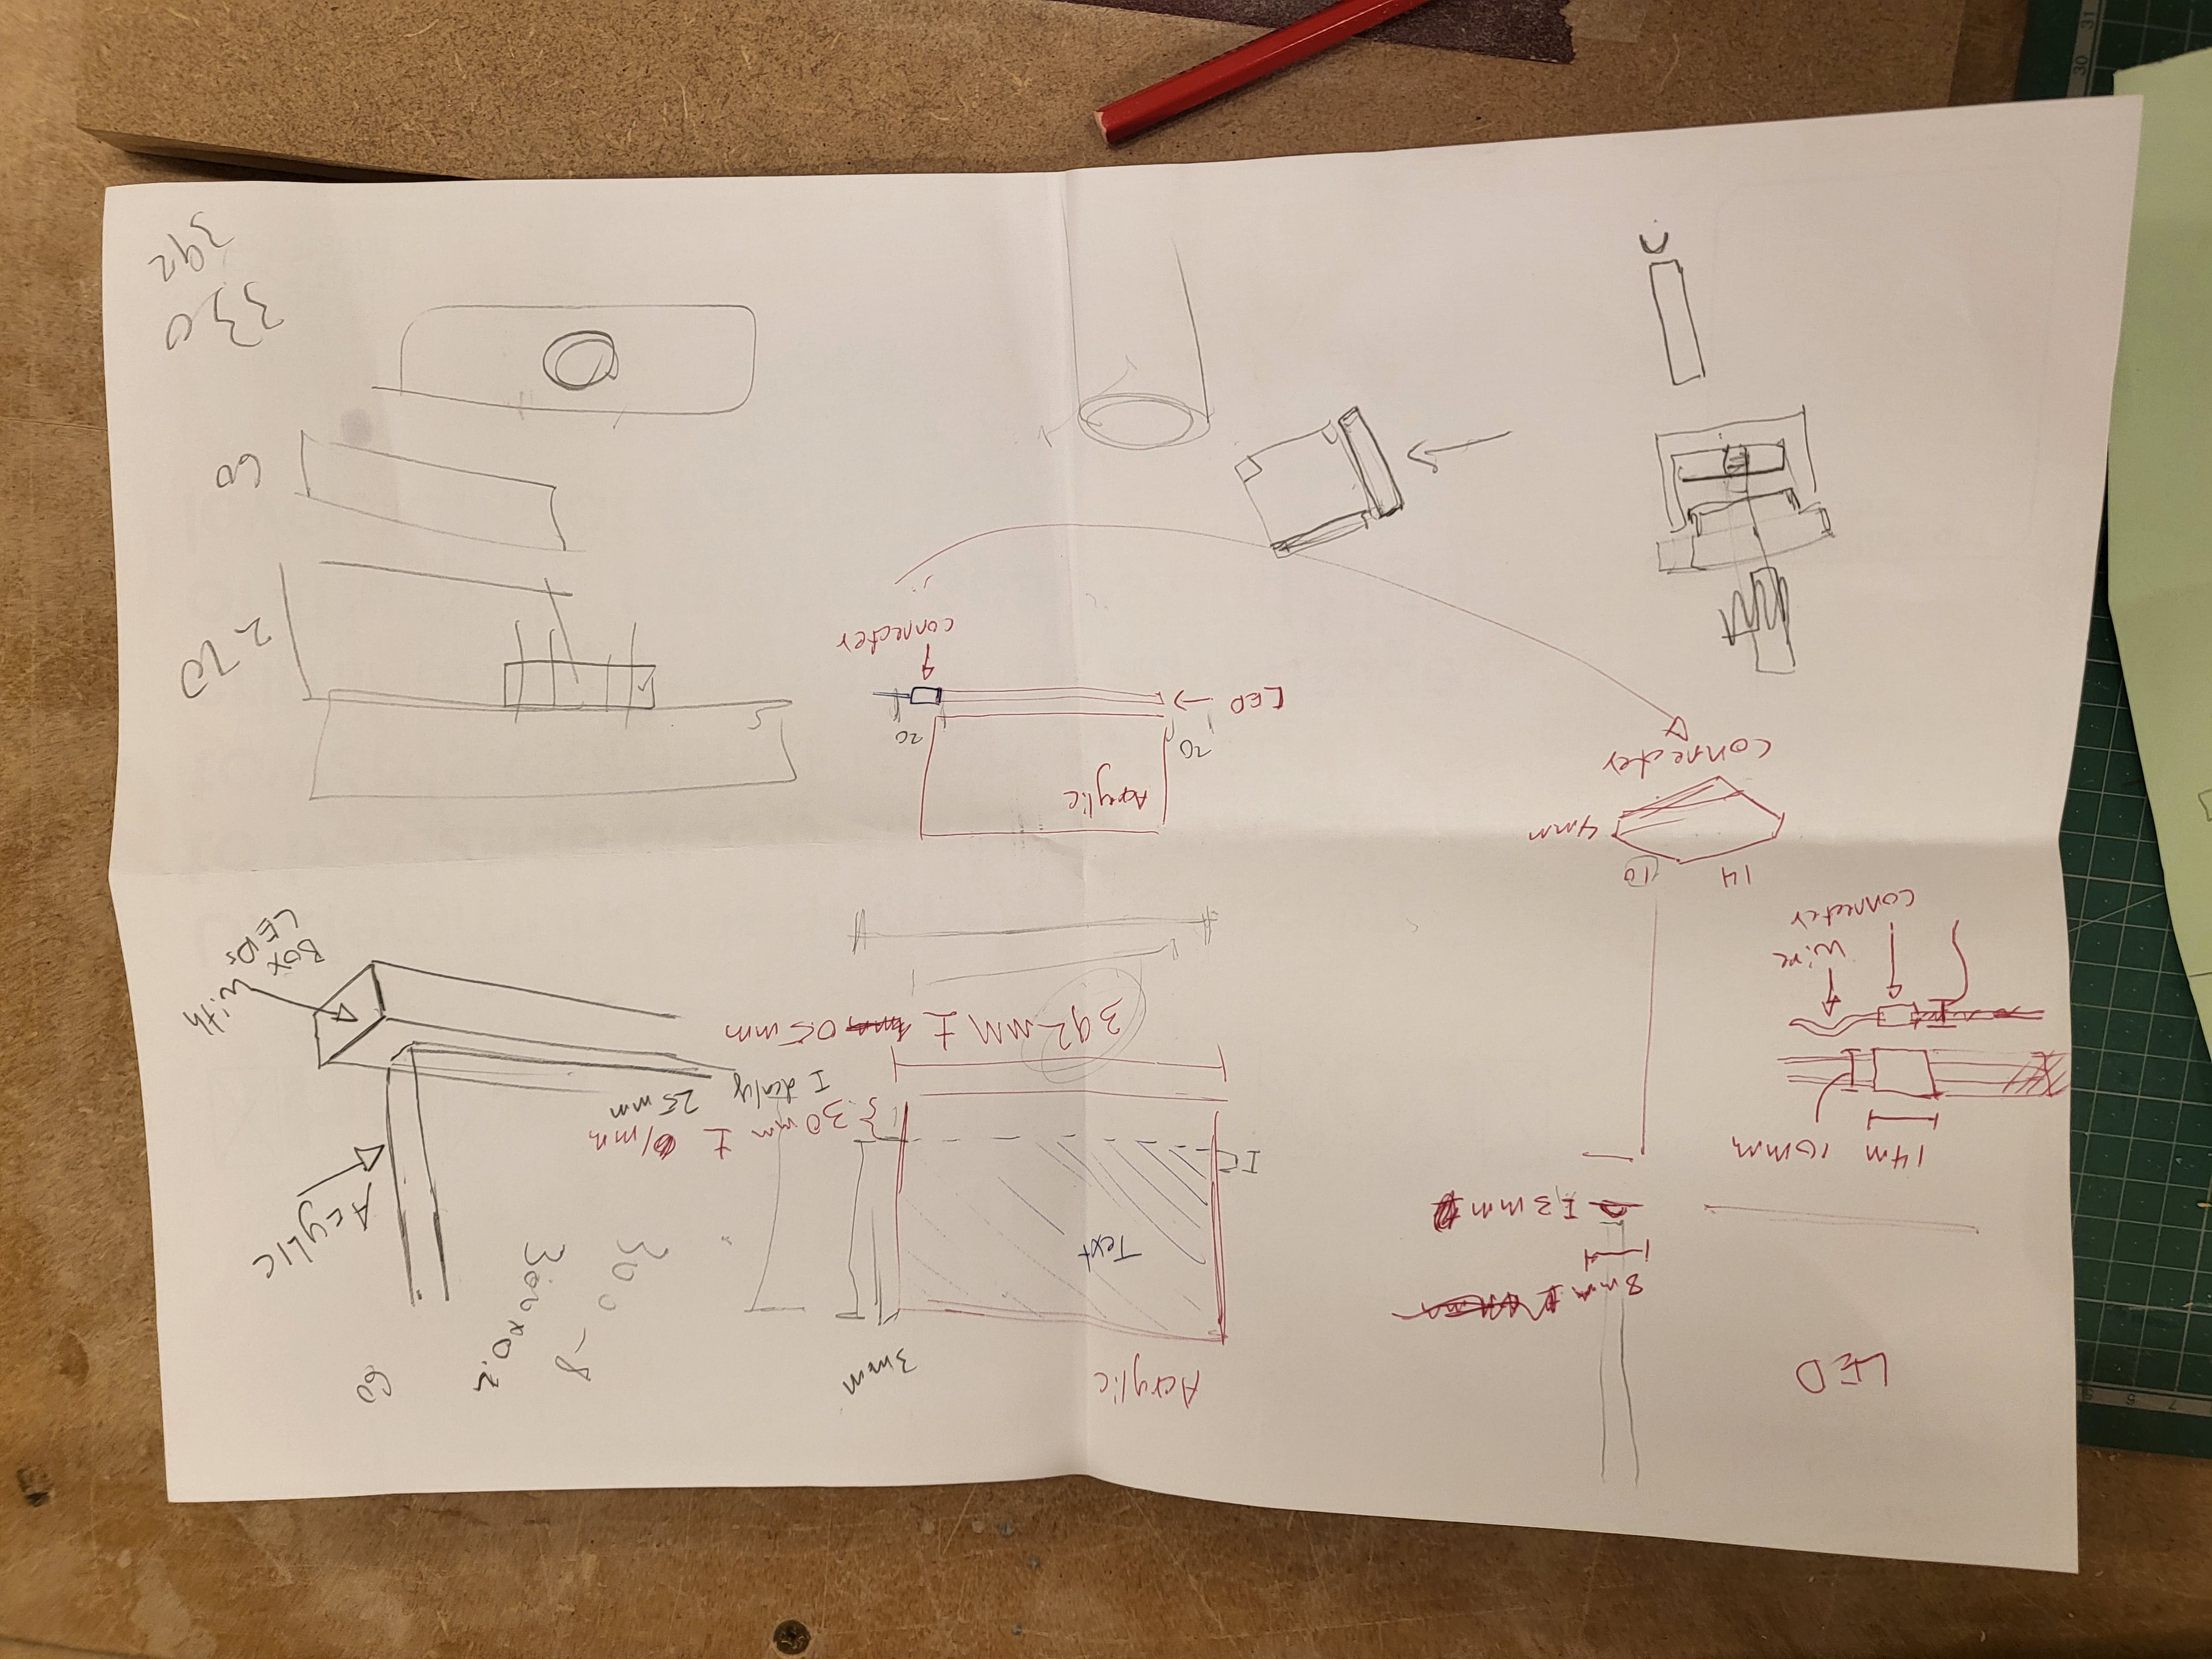 LED
8mm
3mm
14m 10mm
wire
connecter
14 10
4mm
connecter
Acrylic
3mm
Text
30mm ± 1mm
Idealy 25mm
392MM ± 05mm
300-8
300x0.2
60
Acylic
Box with
LEDs
Acrylic
20
20
LED
connecter
220
60
330
392
7 6 5
30
31